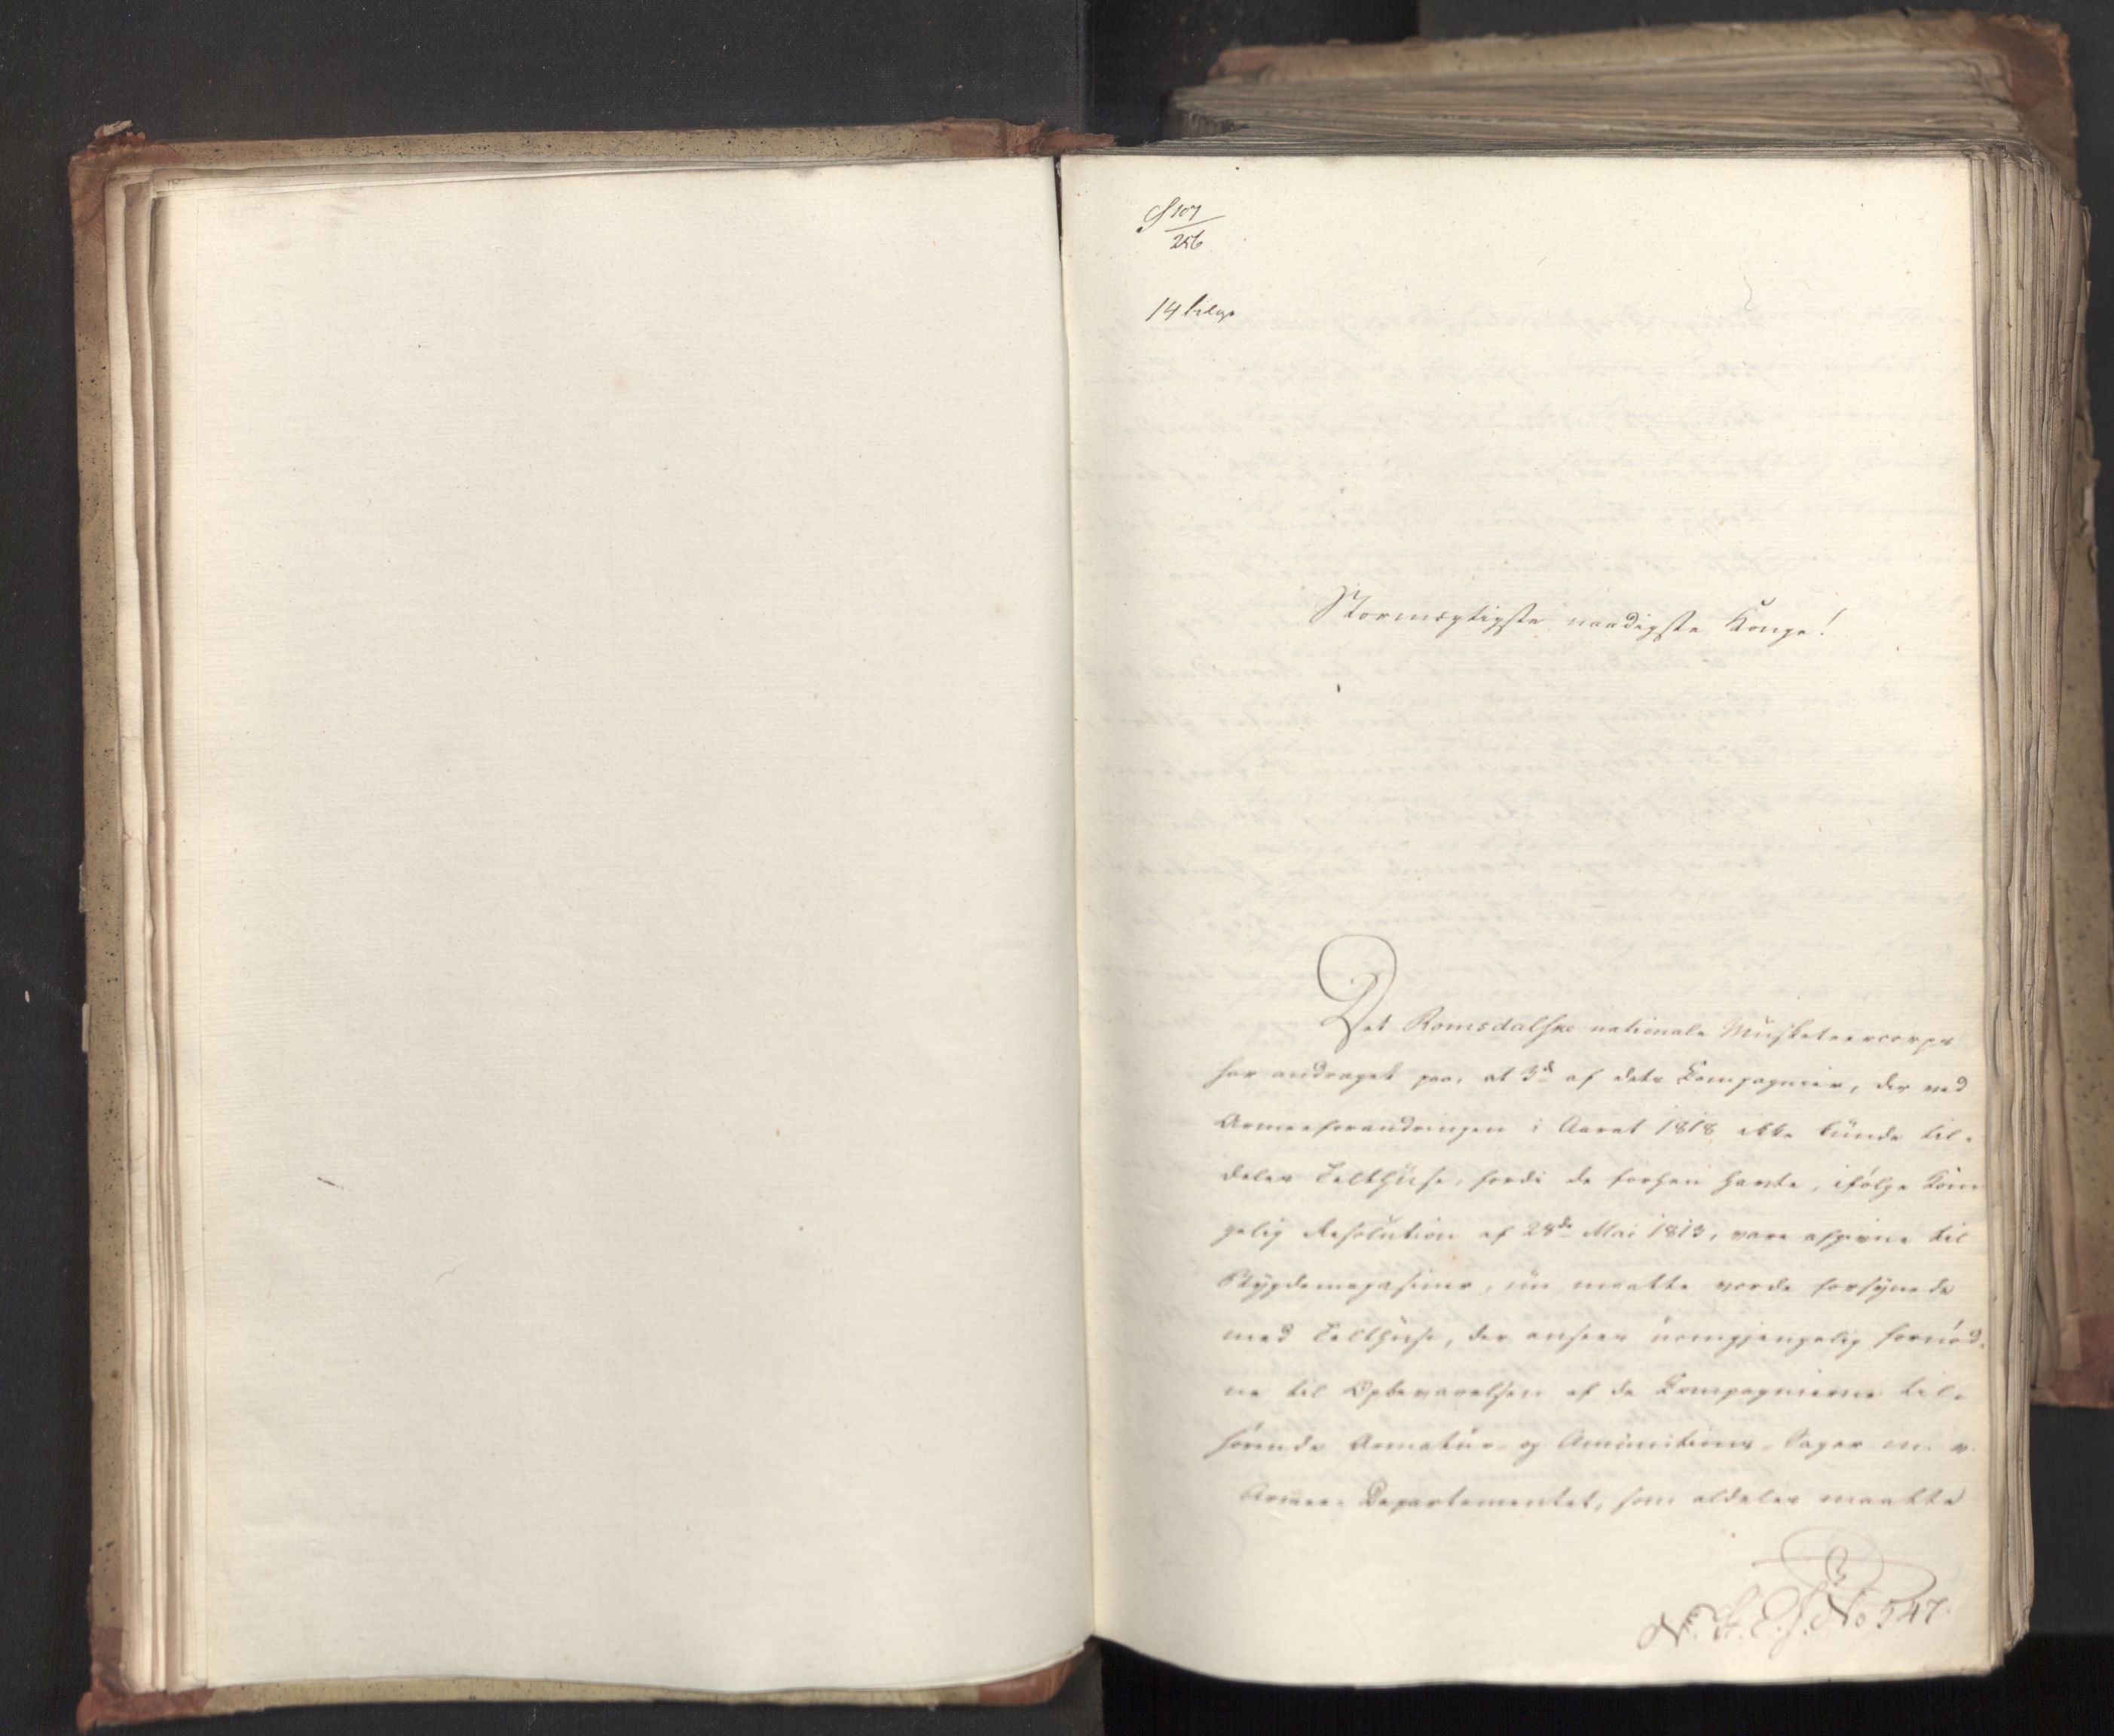 S 107
256
14 bilage
Stormægtigste naadigste Konge!
Det Romsdalske nationale Musketeercorps
har andraget paa, at 3de af dets Compagnier, der ved
Armeeforandringen i Aaret 1818 ikke kunde til-
deles Telthuse, fordi de forhen havte, ifølge Kon-
gelig Resolution af 28de Mai 1813, vare afgivne til
Bygdemagasiner, nu maatte vorde forsynede
med Telthuse, der ansees uomgjengelig fornød-
ne til Opbevarelsen af de Compagnierne til-
hørende Armatur- og Amunitions-Sager m. v.
Armee-Departementet, som aldeles maatte
N. St. E. J. No 547.